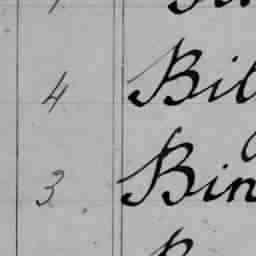 4 Bil
3 Bin